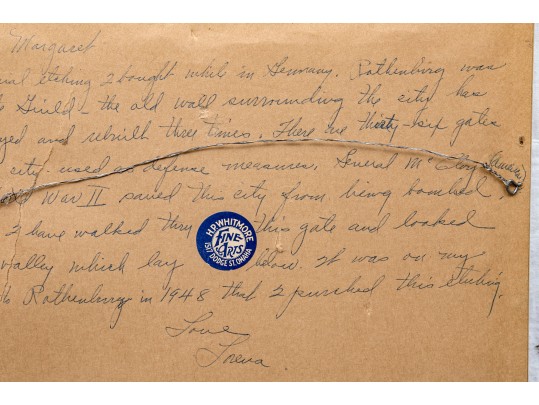 Margaret
etching I bought while in Germany. Rothenburg was
the old wall surrounding the city has
and rebuilt three times. There are thirty-six gates
city - used as defense measures. General McCloy (American)
War II saved this city from being bombed.
I have walked thru this gate and looked
valley which lay below. It was on my
to Rothenburg in 1948 that I purched this etching.
Love
Lorena
H.P. WHITMORE
FINE ARTS
1517 DODGE ST. OMAHA